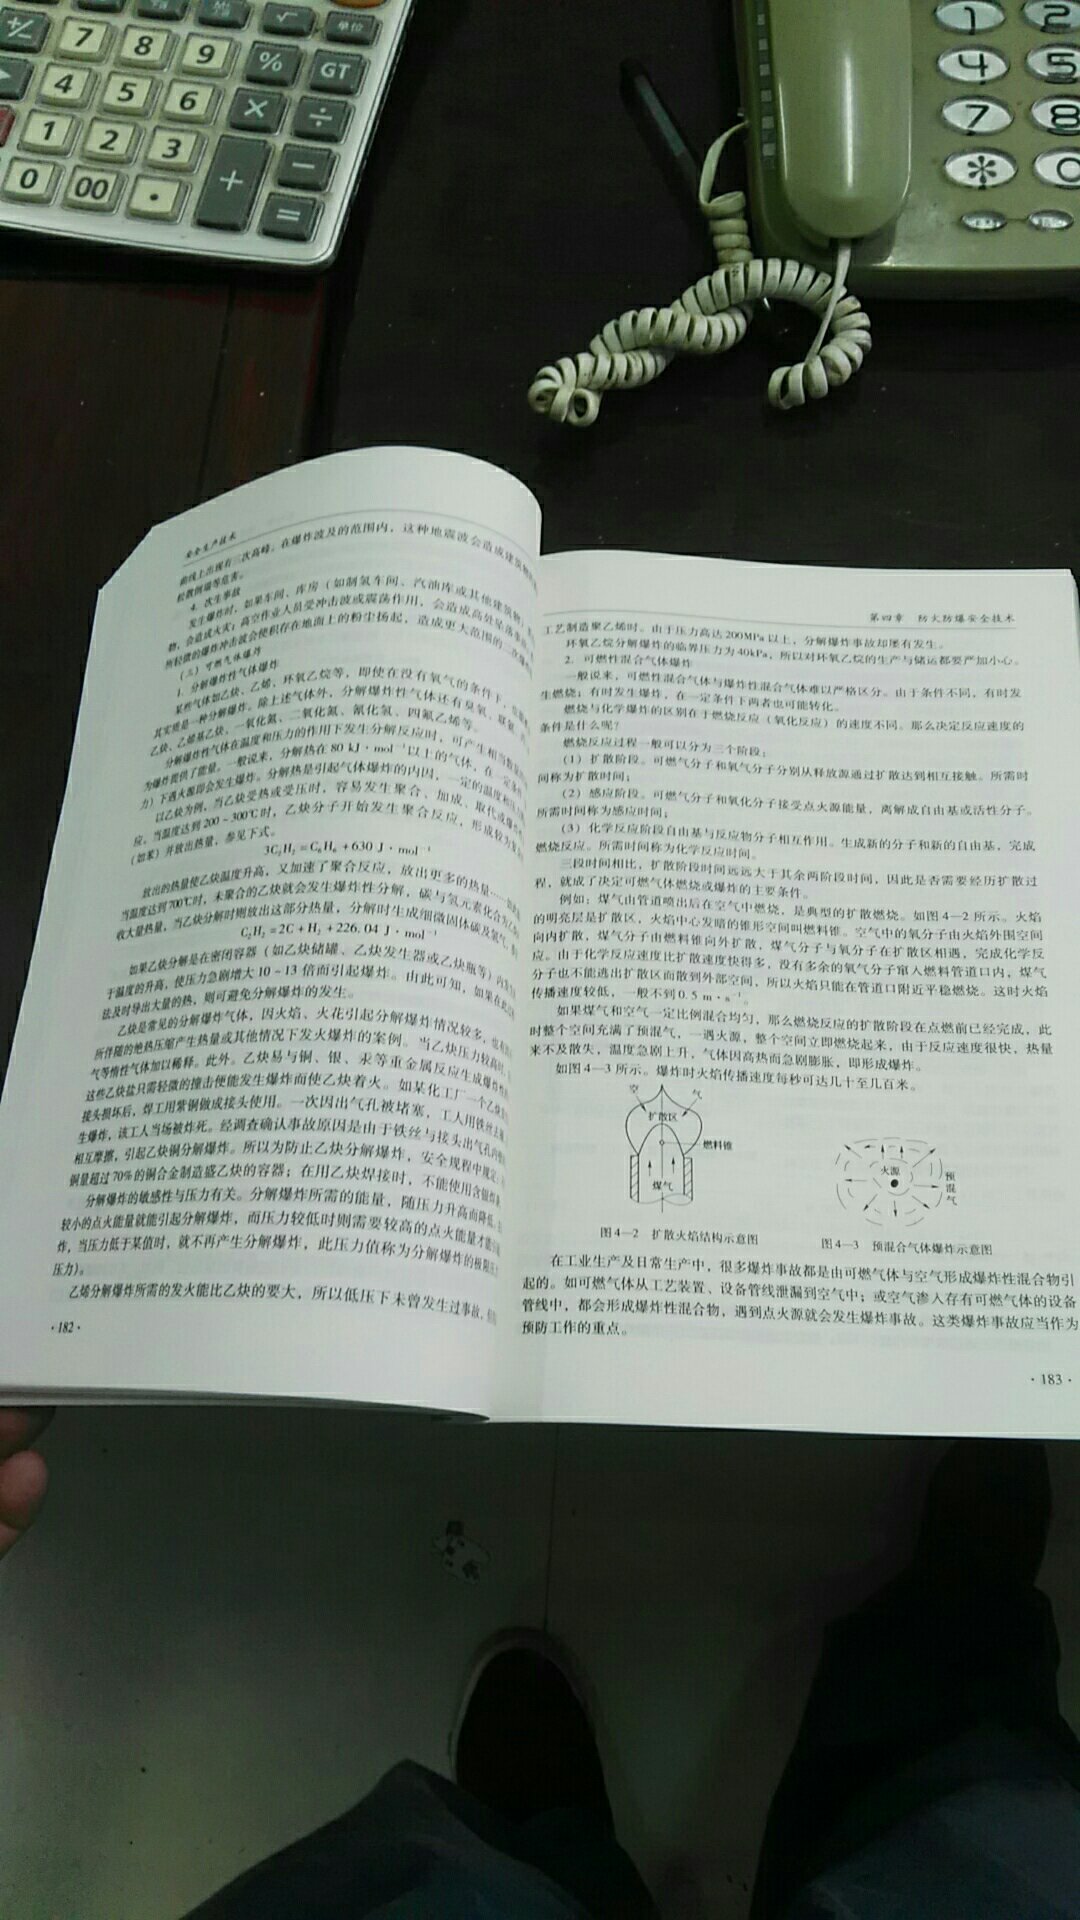 √
单位
7 8 9 % GT
4 5 6 × ÷
1 2 3 + −
0 00 · =
1 2
4 5
7 8
* 0
安全生产技术
曲线上出现有二次高峰。在爆炸波及的范围内，这种地震波会造成建筑物
松散倒塌等危害。
4. 次生事故
发生爆炸时，如果车间、库房（如制氢车间、汽油库或其他建筑物）
物，会造成火灾；高空作业人员受冲击波或震荡作用，会造成高处坠落事故；
所轻微的爆炸冲击波会使积存在地面上的粉尘扬起，造成更大范围的二次爆炸
（三）可燃气体爆炸
1. 分解爆炸性气体爆炸
某些气体如乙炔、乙烯、环氧乙烷等，即使在没有氧气的条件下，也能
其实质是一种分解爆炸。除上述气体外，分解爆炸性气体还有臭氧、联氨、
乙炔、乙烯基乙炔、一氧化氮、二氧化氮、氰化氢、四氟乙烯等。
分解爆炸性气体在温度和压力的作用下发生分解反应时，可产生相当数量的
为爆炸提供了能量。一般说来，分解热在 80 kJ · mol⁻¹以上的气体，在一定条件
力）下遇火源即会发生爆炸。分解热是引起气体爆炸的内因，一定的温度和压
以乙炔为例，当乙炔受热或受压时，容易发生聚合、加成、取代或爆炸性
应。当温度达到 200～300℃时，乙炔分子开始发生聚合反应，形成较为复杂
（如苯）并放出热量，参见下式。
3C₂H₂ = C₆H₆ + 630 J · mol⁻¹
放出的热量使乙炔温度升高，又加速了聚合反应，放出更多的热量……
当温度达到700℃时，未聚合的乙炔就会发生爆炸性分解，碳与氢元素化合为乙炔
收大量热量，当乙炔分解时则放出这部分热量，分解时生成细微固体碳及氢气，
C₂H₂ = 2C + H₂ + 226. 04 J · mol⁻¹
如果乙炔分解是在密闭容器（如乙炔储罐、乙炔发生器或乙炔瓶等）内
于温度的升高，使压力急剧增大 10～13 倍而引起爆炸。由此可知，如果在
法及时导出大量的热，则可避免分解爆炸的发生。
乙炔是常见的分解爆炸气体，因火焰、火花引起分解爆炸情况较多，也有
所伴随的绝热压缩产生热量或其他情况下发火爆炸的案例。当乙炔压力较高时，
气等惰性气体加以稀释。此外。乙炔易与铜、银、汞等重金属反应生成爆炸性
这些乙炔盐只需轻微的撞击便能发生爆炸而使乙炔着火。如某化工厂一个乙炔
接头损坏后，焊工用紫铜做成接头使用。一次因出气孔被堵塞，工人用铁丝去
生爆炸，该工人当场被炸死。经调查确认事故原因是由于铁丝与接头出气孔内
相互摩擦，引起乙炔铜分解爆炸。所以为防止乙炔分解爆炸，安全规程中规定：
铜量超过70%的铜合金制造盛乙炔的容器；在用乙炔焊接时，不能使用含银焊
分解爆炸的敏感性与压力有关。分解爆炸所需的能量，随压力升高而降低。
较小的点火能量就能引起分解爆炸，而压力较低时则需要较高的点火能量才能
炸，当压力低于某值时，就不再产生分解爆炸，此压力值称为分解爆炸的极限压
压力）。
乙烯分解爆炸所需的发火能比乙炔的要大，所以低压下未曾发生过事故，
· 182 ·
第四章 防火防爆安全技术
工艺制造聚乙烯时。由于压力高达 200MPa 以上，分解爆炸事故却屡有发生。
环氧乙烷分解爆炸的临界压力为 40kPa，所以对环氧乙烷的生产与储运都要严加小心。
2. 可燃性混合气体爆炸
一般说来，可燃性混合气体与爆炸性混合气体难以严格区分。由于条件不同，有时发
生燃烧；有时发生爆炸，在一定条件下两者也可能转化。
燃烧与化学爆炸的区别在于燃烧反应（氧化反应）的速度不同。那么决定反应速度的
条件是什么呢？
燃烧反应过程一般可以分为三个阶段：
（1）扩散阶段。可燃气分子和氧气分子分别从释放源通过扩散达到相互接触。所需时
间称为扩散时间；
（2）感应阶段。可燃气分子和氧化分子接受点火源能量，离解成自由基或活性分子。
所需时间称为感应时间；
（3）化学反应阶段自由基与反应物分子相互作用。生成新的分子和新的自由基，完成
燃烧反应。所需时间称为化学反应时间。
三段时间相比，扩散阶段时间远远大于其余两阶段时间，因此是否需要经历扩散过
程，就成了决定可燃气体燃烧或爆炸的主要条件。
例如：煤气由管道喷出后在空气中燃烧，是典型的扩散燃烧。如图 4—2 所示。火焰
的明亮层是扩散区，火焰中心发暗的锥形空间叫燃料锥。空气中的氧分子由火焰外围空间
向内扩散，煤气分子由燃料锥向外扩散，煤气分子与氧分子在扩散区相遇，完成化学反
应。由于化学反应速度比扩散速度快得多，没有多余的氧气分子窜入燃料管道口内，煤气
分子也不能逃出扩散区而散到外部空间，所以火焰只能在管道口附近平稳燃烧。这时火焰
传播速度较低，一般不到 0. 5 m · s⁻¹。
如果煤气和空气一定比例混合均匀，那么燃烧反应的扩散阶段在点燃前已经完成，此
时整个空间充满了预混气，一遇火源，整个空间立即燃烧起来，由于反应速度很快，热量
来不及散失，温度急剧上升，气体因高热而急剧膨胀，即形成爆炸。
如图 4—3 所示。爆炸时火焰传播速度每秒可达几十至几百米。
空 气
扩散区
燃料锥
煤气
火源
预混气
图 4—2 扩散火焰结构示意图
图 4—3 预混合气体爆炸示意图
在工业生产及日常生产中，很多爆炸事故都是由可燃气体与空气形成爆炸性混合物引
起的。如可燃气体从工艺装置、设备管线泄漏到空气中；或空气渗入存有可燃气体的设备
管线中，都会形成爆炸性混合物，遇到点火源就会发生爆炸事故。这类爆炸事故应当作为
预防工作的重点。
· 183 ·